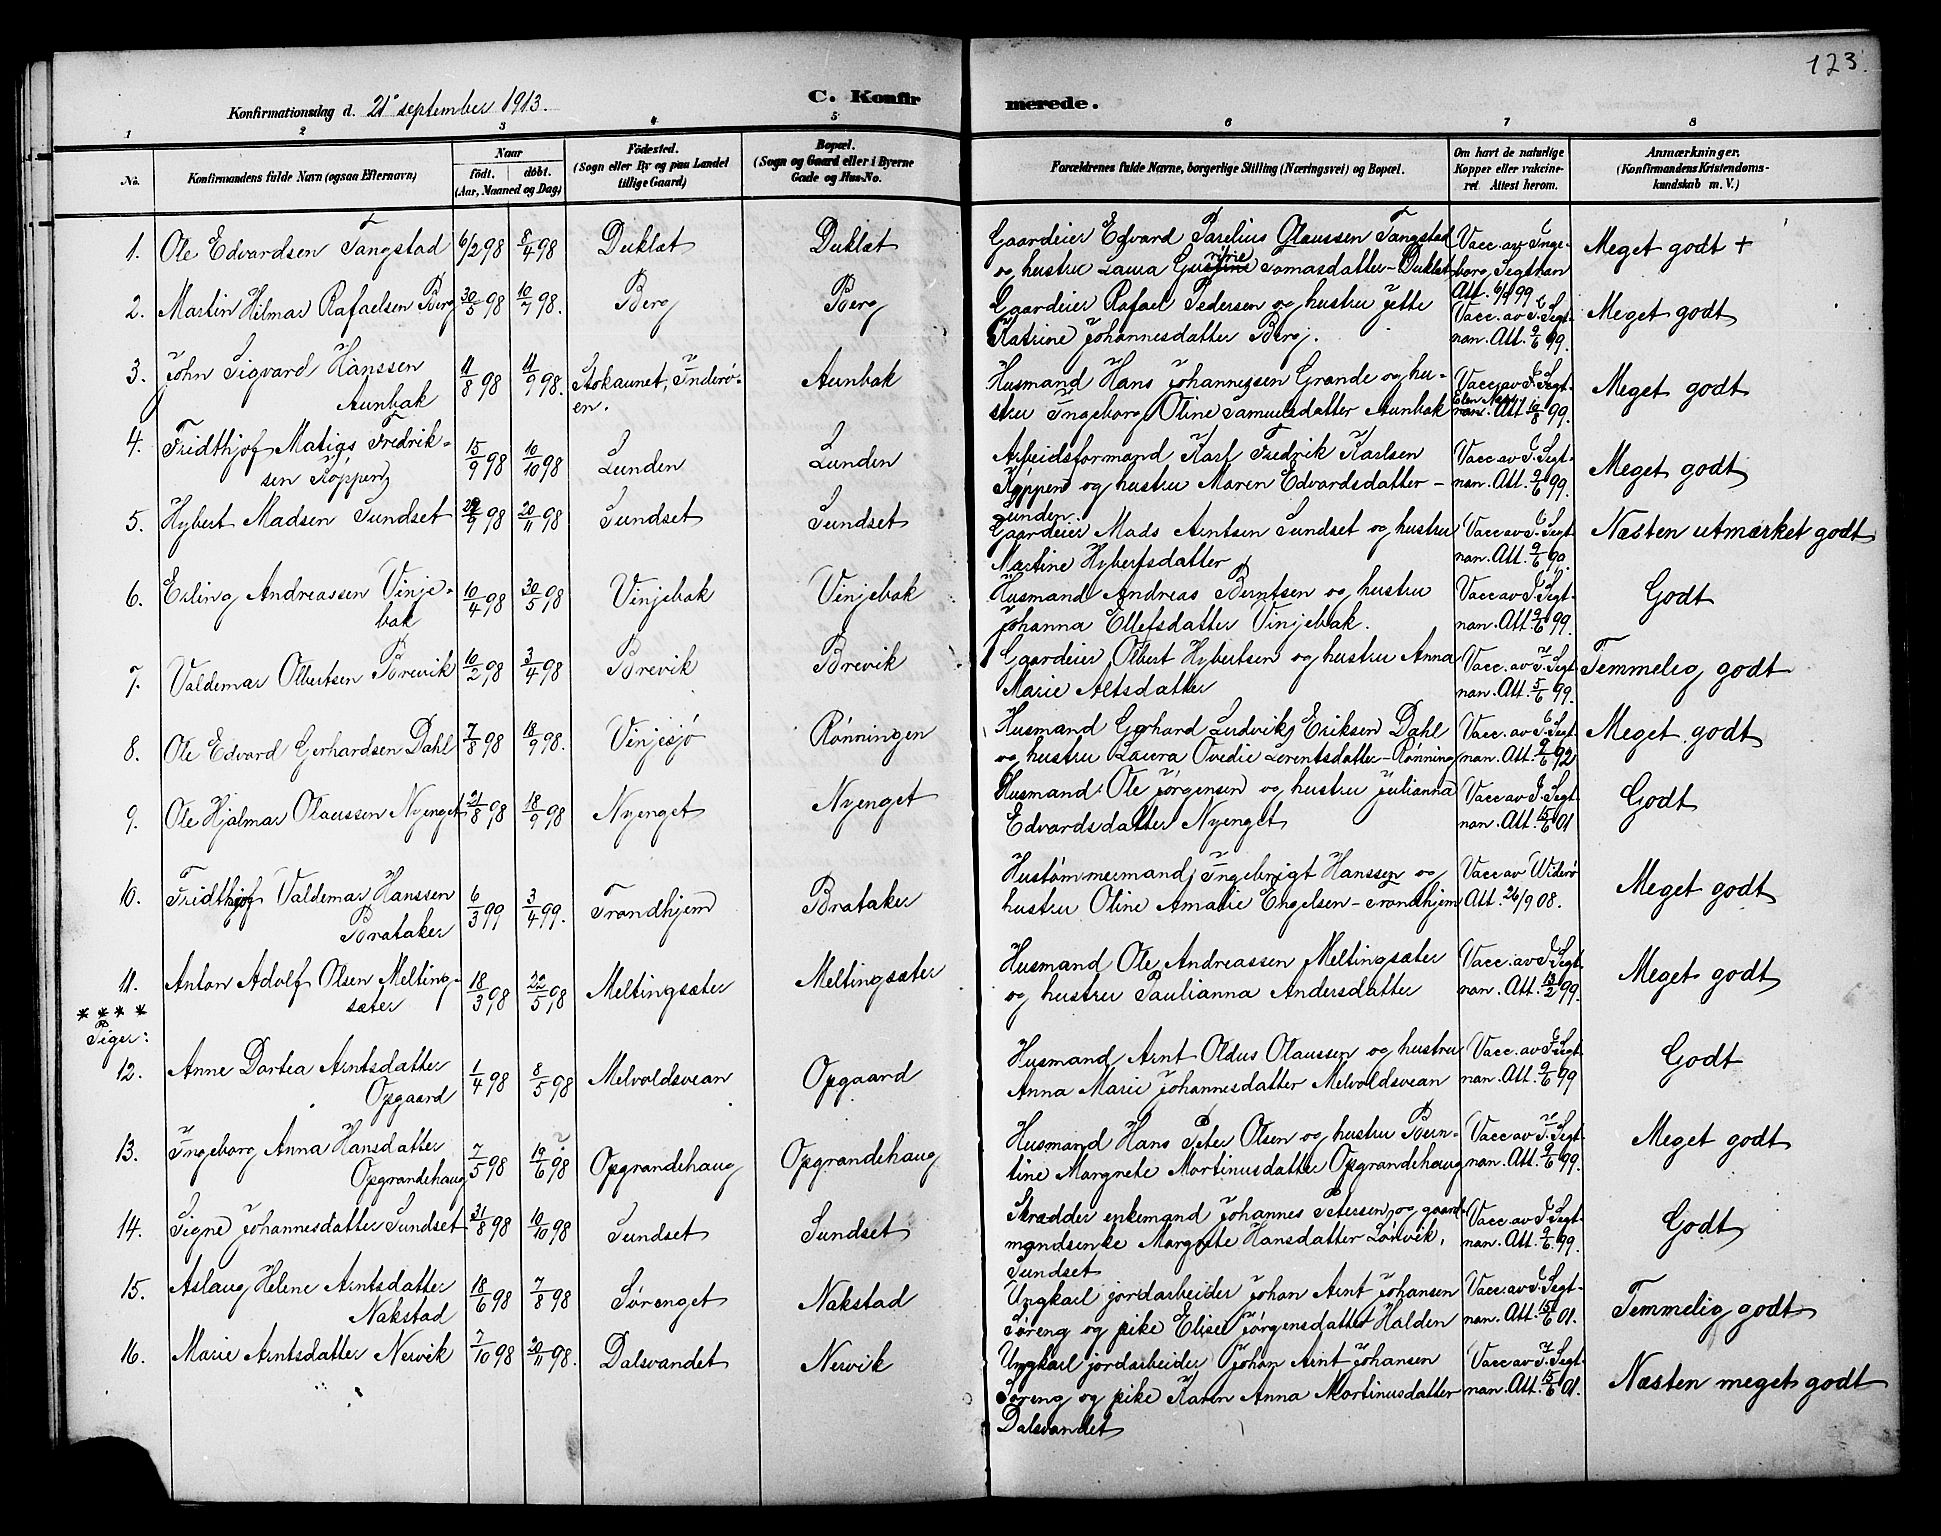 123.
Konfirmationsdag d. 21' september 1913.
C. Konfirmerede.
1 2 3 4 5 6 7 8
No.
Konfirmandens fulde Navn (ogsaa Efternavn)
Naar
födt. döbt.
(Aar, Maaned og Dag)
Födested.
(Sogn eller By og paa Landet
tillige Gaard)
Bopæl.
(Sogn og Gaard eller i Byerne
Gade og Hus-No.
Forældrenes fulde Navne, borgerlige Stilling (Næringsvei) og Bopæl.
Om havt de naturlige
Kopper eller vakcine-
ret Attest herom.
Anmærkninger.
(Konfirmandens Kristendoms-
kundskab m. V.)
1. Ole Edvardsen Tangstad 6/2 98 8/4 98 Duklæt Duklæt
Gaardeier Edvard Parelius Olaussen Tangstad
og hustru Laura Tomasdatter - Duklæt
Vacc. av Inge-
borg Segtnan
Att. 6/9 99
Meget godt +
2. Martin Hilmar Rafaelsen Berg 30/5 98 10/7 98. Berg Berg
Gaardeier Rafael Pedersen og hustru Jette
Katrine Johannesdatter Berg.
Vacc. av I. Segt-
nan. Att. 9/6 99.
Meget godt
3. John Sigvard Hanssen
Aunbak
11/8 98 11/9 98. Stokaunet, Inderø-
en.
Aunbak
Husmand Hans Johannessen Grande og hu-
stru Ingeborg Oline Samuelsdatter Aunbak
Vacc. av I. Segt-
Att. 10/8 99.
Meget godt
4. Fridthjof Matigs Fredrik-
sen Köppen
15/9 98 10/10 98 Lunden Lunden
Arbeidsformand Karl Fredrik Karlsen
Köppen og hustru Maren Edvardsdatter -
Lunden.
Vacc av I. Segt-
nan. Att. 9/6 99.
Meget godt
5. Hybert Madsen Sundset 29/9 98 20/11 98 Sundset Sundset
Gaardeier Mads Arntsen Sundset og hustru
Martine Hybertsdatter
Vacc av I. Segt-
nan. Att. 9/6 99.
Næsten utmærket godt
6. Erling Andreassen Vinje-
bak
10/4 98 30/5 98 Vinjebak Vinjebak
Husmand Andreas Berntsen og hustru
Johanna Ellefsdatter Vinjebak.
Vacc av I. Segt-
nan. Att 9/6 99.
Godt
7. Valdemar Olbertsen Brevik 10/2 98 3/4 98 Brevik Brevik
Gaardeier Olbert Hybertsen og hustru Anna
Marie Altsdatter
Vacc. av I. Segt-
nan. Att. 5/6 99.
Temmelig godt
8. Ole Edvard Gerhardsen Dahl 7/8 98 18/9 98. Vinjesjø Rønningen
Husmand Gerhard Ludvik Eriksen Dahl
og hustru Laura Ovedie Lorentsdatter - Rønning
Vacc. av I. Segt
nan. Att. 9/6 92
Meget godt
9. Ole Hjalmar Olaussen Nyenget 21/8 98 18/9 98 Nyenget Nyenget
Husmand Ole Jørgensen og hustru Julianna
Edvardsdatter Nyenget
Vacc av I. Segt
nan. Att. 15/6 01
Godt
10. Fridthjof Valdemar Hanssen
Brataker
6/3 99 3/4 99. Trondhjem Brataker
Hustømmermand Ingebrigt Hanssen og
hustru Oline Amalie Engelsen - Trondhjem
Vacc av Widerø
Att. 26/9 08.
Meget godt
11. Anton Adolf Olsen Melting-
sæter
18/3 98 22/5 98 Meltingsæter Meltingsæter
Husmand Ole Andreassen Meltingsæter
og hustru Paulianna Andersdatter
Vacc. av I. Segt
nan. Att. 13/2 99.
Meget godt
* * * *
Piger:
12. Anne Dortea Arntsdatter
Opgaard
1/4 98 8/5 98 Melvoldsvean Opgaard
Husmand Arnt Oldus Olaussen og hustru
Anna Marie Johannesdatter Melvoldsvean
Vacc. av I. Segt
nan. Att. 9/6 99
Godt
13. Ingeborg Anna Hansdatter
Opgrandehaug
7/5 98 19/6 98 Opgrandehaug Opgrandehaug
Husmand Hans Peter Olsen og hustru Bern-
tine Margrete Mortinusdatter Opgrandehaug
Vacc av I. Segt-
nan. Att. 9/6 99.
Meget godt
14. Signe Johannesdatter Sundset 31/8 98 10/10 98 Sundset Sundset
Skrædder enkemand Johannes Petersen og gaard-
mandsenke Margrete Hansdatter Lørvik,
Sundset
Vacc av I. Segt-
nan. Att. 9/6 99.
Godt
15. Aslaug Helene Arntsdatter
Nakstad
18/6 98 7/8 98 Sørenget Nakstad
Ungkarl jordarbeider Johan Arnt Johansen
Søreng og pike Elise Jørgensdatter Halden
Vacc. av I. Segt
nan. Att. 15/6 01.
Temmelig godt
16. Marie Arntsdatter Nervik 7/10 98 20/11 98. Dalsvandet Nervik
Ungkarl jordarbeider Johan Arnt Johansen
Søreng og pike Karen Anna Mortinusdatter
Dalsvandet
Vacc av I. Segt-
nan. Att. 15/6 01.
Næsten meget godt